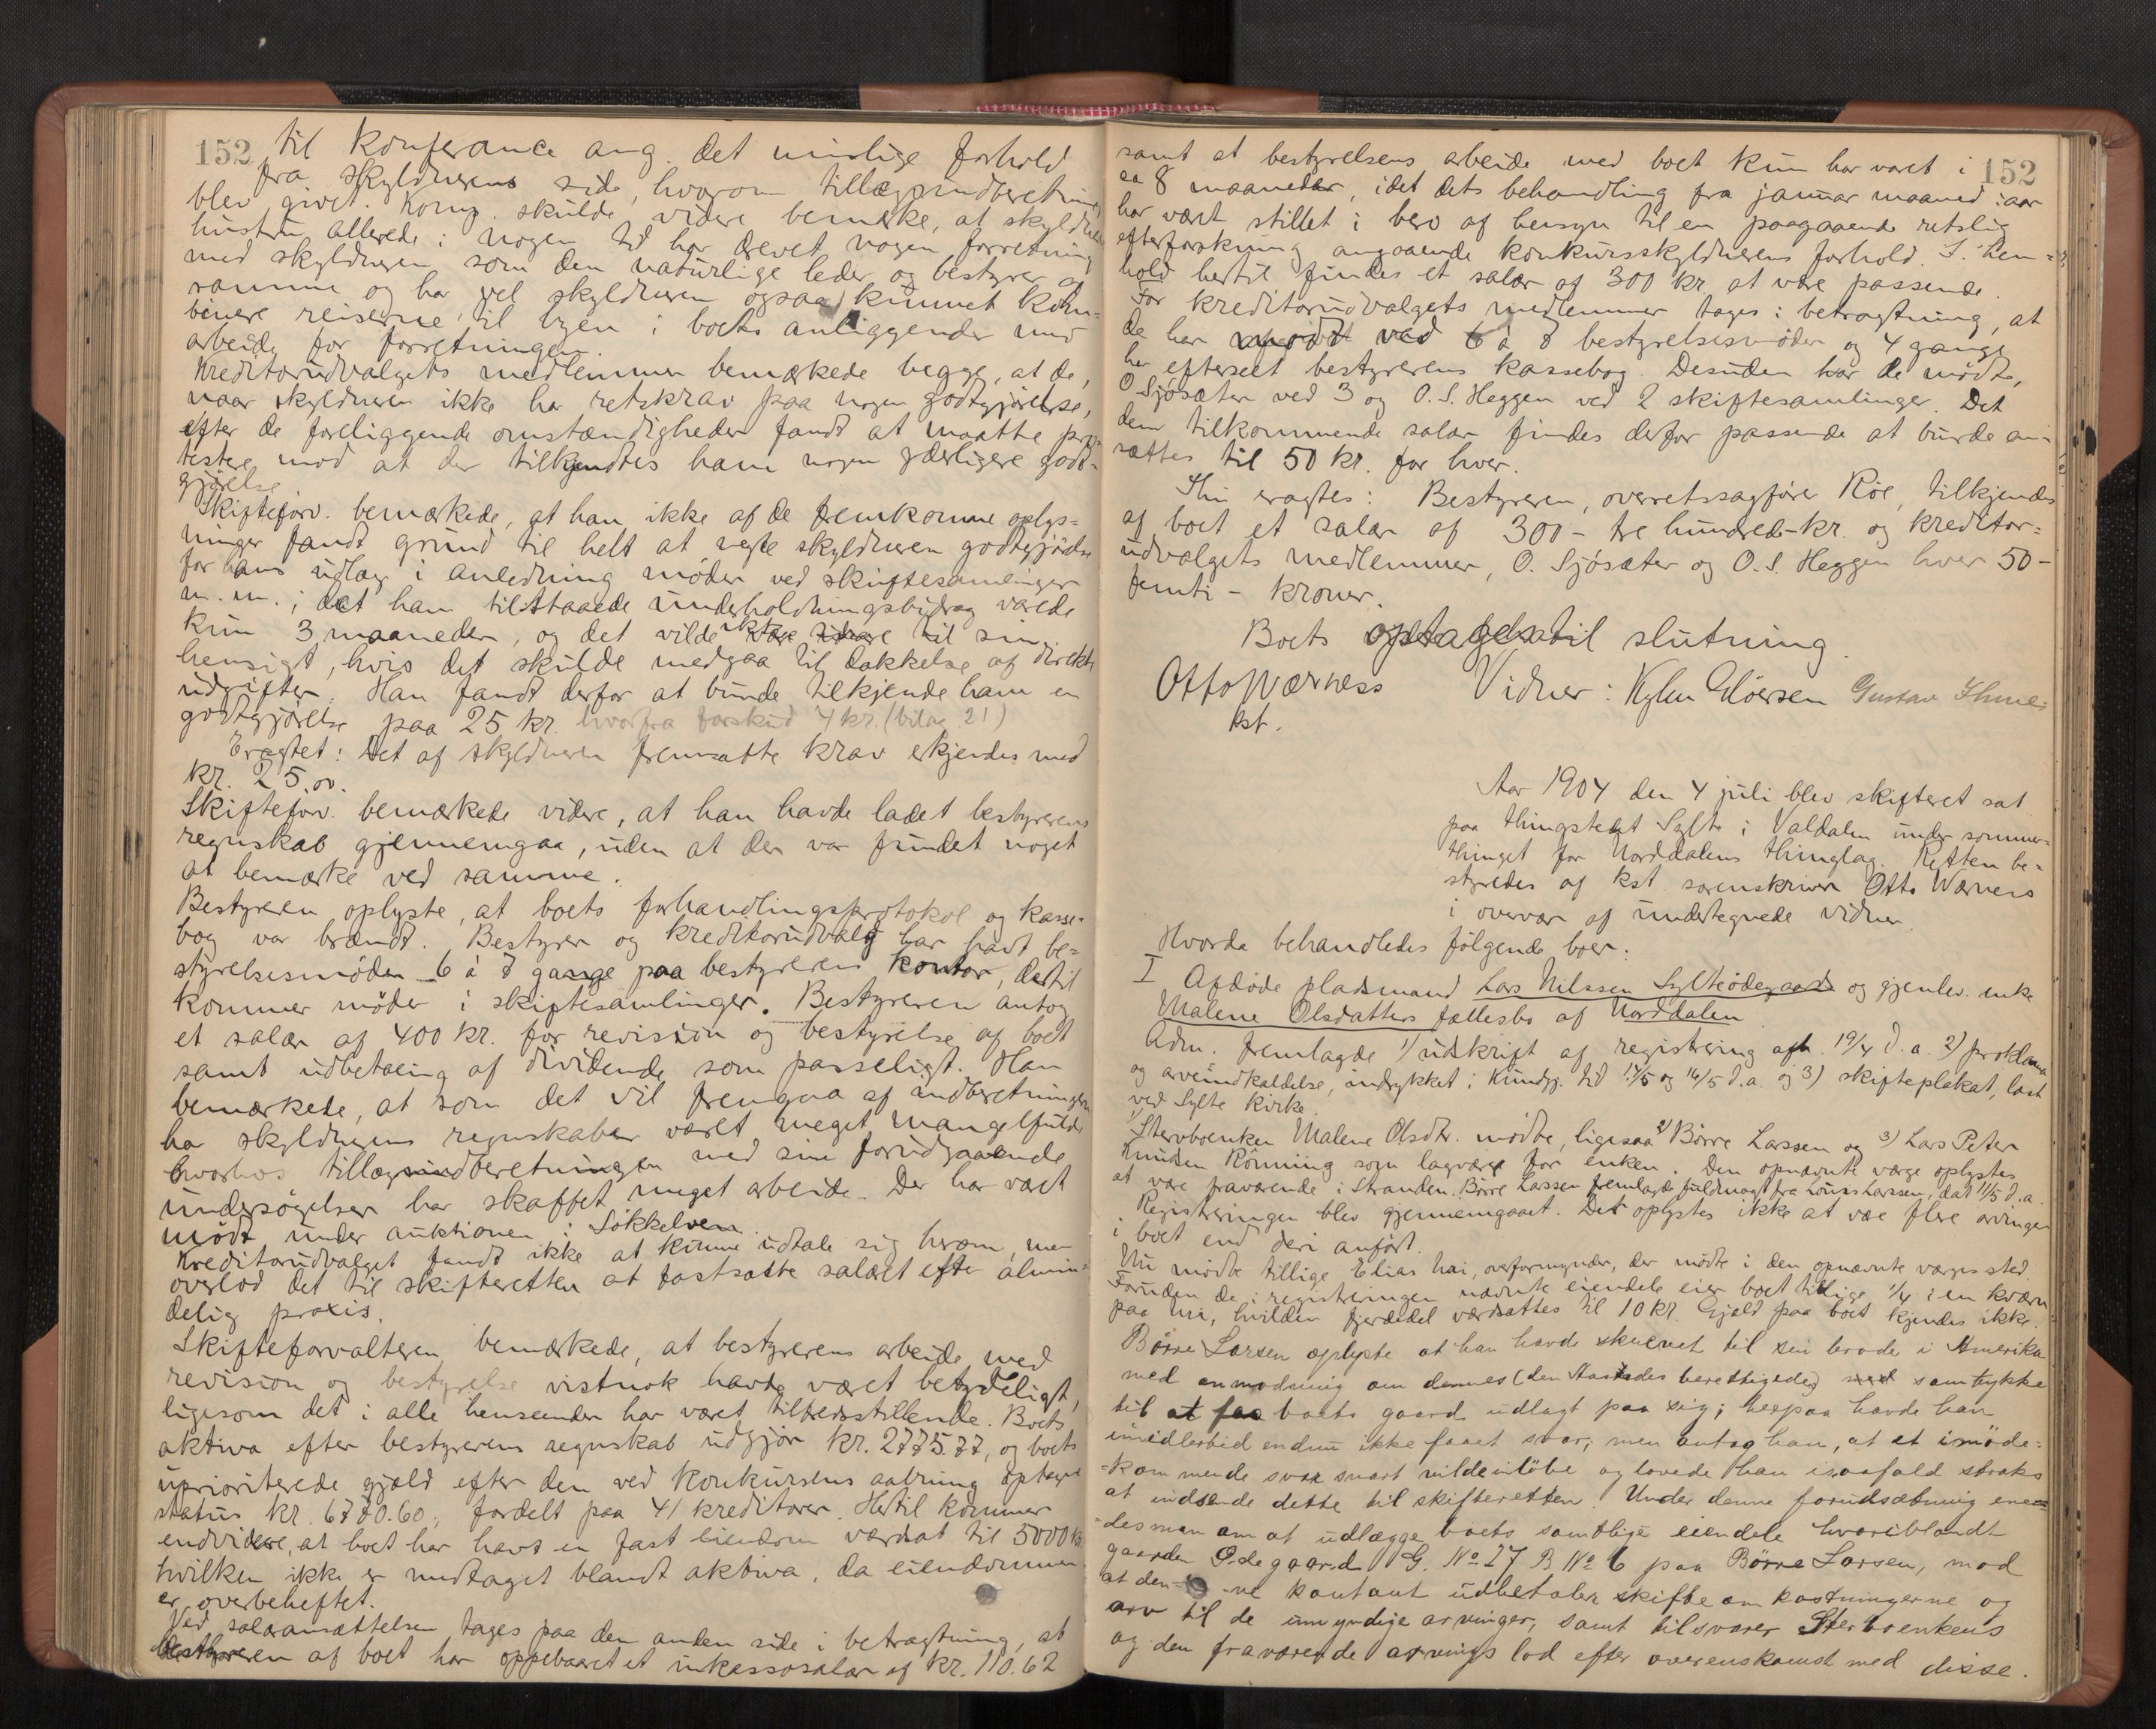 152 til konferance ang. det mislige forhold
fra skyldnerens side, hvorom tillægsindberetning
blev givet. Komp. skulde videre bemærke, at skyldnerens
hustru allerede i nogen tid har drevet nogen forretning
med skyldneren som den naturlige leder og bestyrer af
samme og har vel skyldneren ogsaa kunnet kom-
binere reiserne til byen i boets anliggender med
arbeide for forretningen.
Kreditorudvalgets medlemmer bemærkede begge, at de,
naar skyldneren ikke har retskrav paa nogen godtgjørelse,
efter de foreliggende omstændigheder fandt at maatte pro-
testere mod at der tilkjendtes ham nogen yderligere godt-
gjørelse
Skifteforv. bemærkede, at han ikke af de fremkomne oplys-
ninger fandt grund til helt at negte skyldneren godtgjørelse
for hans udlæg i anledning møder ved skiftesamlinger
m.m.; det ham tilstaaede underholdningsbidrag varede
kun 3 maaneder, og det vilde ikke svare til sin
hensigt, hvis det skulde medgaa til dækkelse af direkte
udgifter. Han fandt derfor at burde tilkjende ham en
godtgjørelse paa 25 kr. hvorfra forskud 4 kr. (bilag 21)
Eragtet: Det af skyldneren fremsatte krav erkjendes med
kr. 25.00.
Skifteforv. bemærkede videre, at han havde ladet bestyrerens
regnskab gjennemgaa, uden at der var fundet noget
at bemærke ved samme.
Bestyreren oplyste, at boets forhandlingsprotokol og kasse-
bog var brændt. Bestyrer og kreditorudvalg har havt be-
styrelsesmøder 6 à 8 gange paa bestyrerens kontor, dertil
kommer møder i skiftesamlinger. Bestyreren antog
et salær af 400 kr. for revision og bestyrelse af boet
samt udbetaling af dividende som passeligt. Han
bemærkede, at som det vil fremgaa af indberetningen
har skyldnerens regnskaber været meget mangelfulde
hvorhos tillægsindberetningen med sine forudgaaende
undersøgelser har skaffet meget arbeide. Der har været
mødt under auktionen i Søkkelven.
Kreditorudvalget fandt ikke at kunne udtale sig herom, men
overlod det til skifteretten at fastsætte salæret efter almin-
delig praxis.
Skifteforvalteren bemærkede, at bestyrerens arbeide med
revision og bestyrelse vistnok havde været betydeligt,
ligesom det i alle henseender har været tilfredsstillende. Boets
aktiva efter bestyrerens regnskab udgjør kr. 2775.77, og boets
uprioriterede gjæld efter den ved konkursens aabning optagne
status kr. 6780.60, fordelt paa 41 kreditorer. Hertil kommer
endvidere, at boet har havt en fast eiendom værdsat til 5000 kr
hvilken ikke er medtaget blandt aktiva, da eiendommen
er overbeheftet.
Ved salæransættelsen tages paa den anden side i betragtning, at
bestyreren af boet har oppebaaret et inkassosalær af kr. 110.62
samt at bestyrelsens arbeide med boet kun har varet i 152
ca 8 maaneder, idet dets behandling fra januar maaned iaar
har været stillet i bero af hensyn til en paagaaende retslig
efterforskning angaaende konkursskyldnerens forhold. I hen-
hold hertil findes et salær af 300 kr. at være passende.
For kreditorudvalgets medlemmer tages i betragtning, at
de har mødt ved 6 à 8 bestyrelsesmøder og 4 gange
har efterseet bestyrerens kassebog. Desuden har de mødt,
O Sjøsæter ved 3 og O. S. Heggen ved 2 skiftesamlinger. Det
dem tilkommende salær findes derfor passende at burde an-
sættes til 50 kr. for hver.
Thi eragtes: Bestyreren, overretssagfører Röe, tilkjendes
af boet et salær af 300 - tre hundred - kr. og kreditor-
udvalgets medlemmer, O. Sjøsæter og O. S. Heggen hver 50 -
femti - kroner.
Boets optages til slutning.
Otto Wærness Vidner: Gustav
kst.
Aar 1904 den 4 juli blev skifteret sat
paa thingstedet Sylte i Valdalen under sommer-
thinget for Norddalens thinglag. Retten be-
styredes af kst. sorenskriver Otto Wærness
i overvær af undertegnede vidner.
Hvorda behandledes følgende boer:
I Afdøde pladsmand Lars Nilssen Sylteødegaards og gjenlev. enke
Malene Olsdatters fællesbo af Norddalen
Adm. fremlagde 1) udskrift af registrering afh. 19/4 d. a. 2) proklama
og arveindkaldelse, indrykket i Kundgj. tid 12/5 og 16/5 d.a. og 3) skifteplakat, læst
ved Sylte kirke.
1) Stervboenken Malene Olsdtr. mødte, ligesaa 2) Børre Larssen og 3) Lars Peter
Knudsen Rønning som lagværge for enken. Den opnævnte værge oplystes
at være fraværende i Stranden. Børre Larssen fremlagde fuldmagt fra Louis Larssen, dat 11/5 d.a.
Registreringen blev gjennemgaaet. Det oplystes ikke at være flere arvinger
i boet end deri anført.
Nu mødte tillige Elias Mai, overformynder, der mødte i den opnævnte værges sted.
Foruden de i registreringen nævnte eiendele eier boet tillige 1/4 i en kværn
paa Uri, hvilken fjerdedel værdsattes til 10 kr. Gjæld paa boet kjendes ikke.
Børre Larsen oplyste at han havde skrevet til sin broder i Amerika
med anmodning om dennes (den Aastedes berettigede) samtykke
til at faa boets gaard udlagt paa sig; herpaa havde han
imidlertid endnu ikke faaet svar, men antog han, at et imøde-
-kommende svar snart vilde indløbe og lovede han isaafald straks
at indsende dette til skifteretten. Under denne forudsætning ene-
-des man om at udlægge boets samtlige eiendele hvoriblandt
gaarden Ødegaard G. No 27 B No 6 paa Børre Larsen, mod
at denne kontant udbetaler skifteomkostningerne og
arv til de umyndige arvinger, samt tilsvarer Sterboenkens
og den fraværende arvings lod efter overenskomst med disse.